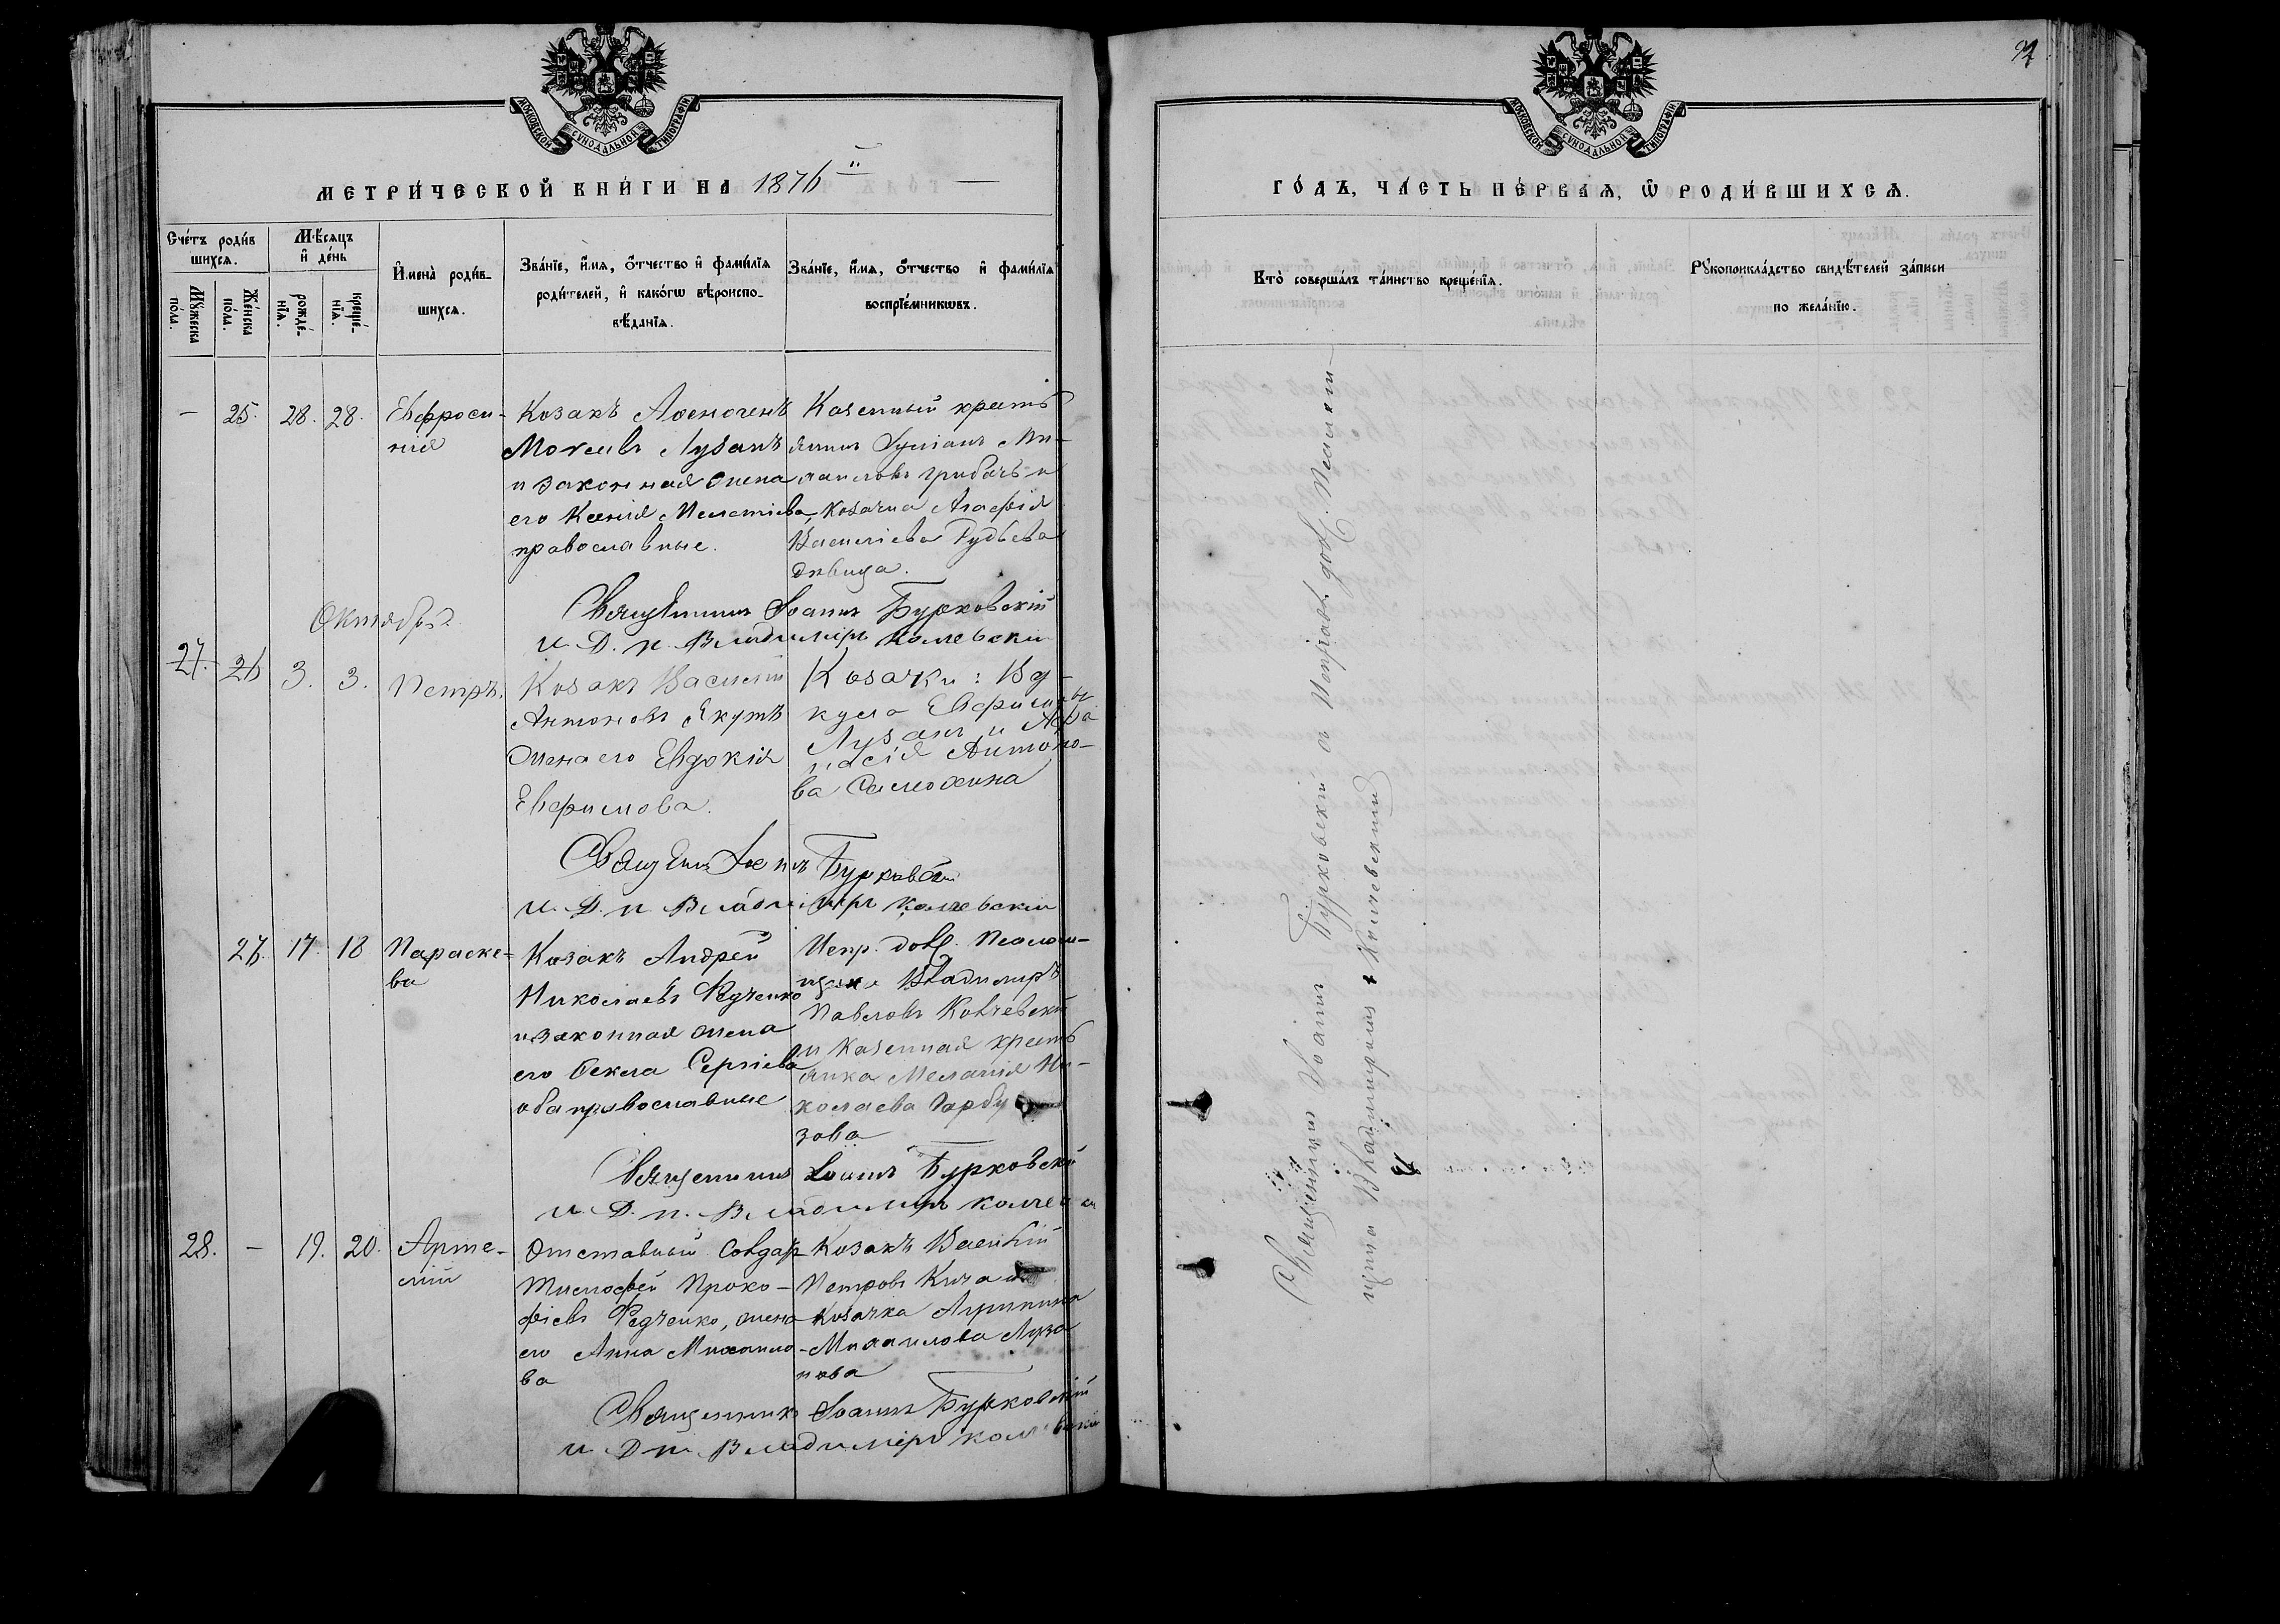 МОСКОВСКОЙ СѴНОДАЛЬНОЙ ТИПОГРАФІИ
МЕТРИ́ЧЕСКОЙ КНИ́ГИ НА 1876 й
Сче́тъ роди́в
шихсѧ.
Мꙋжеска
пола.
Же́нска
по́ла.
Мѣ́сѧцъ
и҆ де́нь
рожде́-
нїѧ.
креще́-
нїѧ.
И҆мена̀ роди́в-
шихсѧ.
Зва́нїе, и҆́мѧ, ѻ҆́тчество и҆ фами́лїѧ
роди́телей, и҆ како́гѡ вѣроиспо-
вѣ́данїѧ.
Зва́нїе, и҆́мѧ, ѻ҆́тчество и҆ фами́лїѧ
воспрїе́мникѡвъ.
— 25. 28. 28. Евфроси-
нія
Козакъ
Лузанъ
и законная жена
его Ксенія Мелетіева
православные.
Казенный крестъ
янинъ Ми-
хаиловъ Грибачъ и
козачка Агафія
Василіева Рудьева
дѣвица.
Священникъ Іоаннъ Бурковскій
и. д. п. Владиміръ
Октябрь
27. 26 3. 3. Петръ.
Козакъ Василій
Антоновъ Якутъ
жена его Евдокія
Евфимова.
Козачки:
Лузанъ и Афа
насія Антоно-
ва Самохина
Священ Іоаннъ Бурковскій
и. д. п. Владиміръ
26. 17. 18 Параске-
ва
Козакъ Андрей
Николаевъ Федченко
и законная жена
его Ѳекла Сергіева
оба православные
Испр. долж. Псалом-
щика Владиміръ
Павловъ
и казенная крестъ
янка Меланія Ни-
колаева Гарбу
зова
Священникъ Іоаннъ Бурковскій
и. д. п. Владиміръ
28. — 19. 20. Арте-
мій
Отставный Солдат
Тимофей Проко-
фіевъ Федченко, жена
его Анна Михаило-
ва
Козакъ Василій
Петровъ
Козачка Агрипина
Михаилова Луза
нова
Священникъ Іоаннъ Бурковскій
и. д. п. Владиміръ
МОСКОВСКОЙ СѴНОДАЛЬНОЙ ТИПОГРАФІИ
ГО́ДЪ, ЧА́СТЬ ПЕ́РВАѦ, Ѡ҆ РОДИ́ВШИХСѦ.
Кто̀ соверша́лъ та́инство креще́нїѧ.
Рꙋкоприкла́дство свидѣ́телей за́писи
по жела́нїю.
Священникъ Іоаннъ Бурковскій съ долж. Псалом
щика Владиміромъ